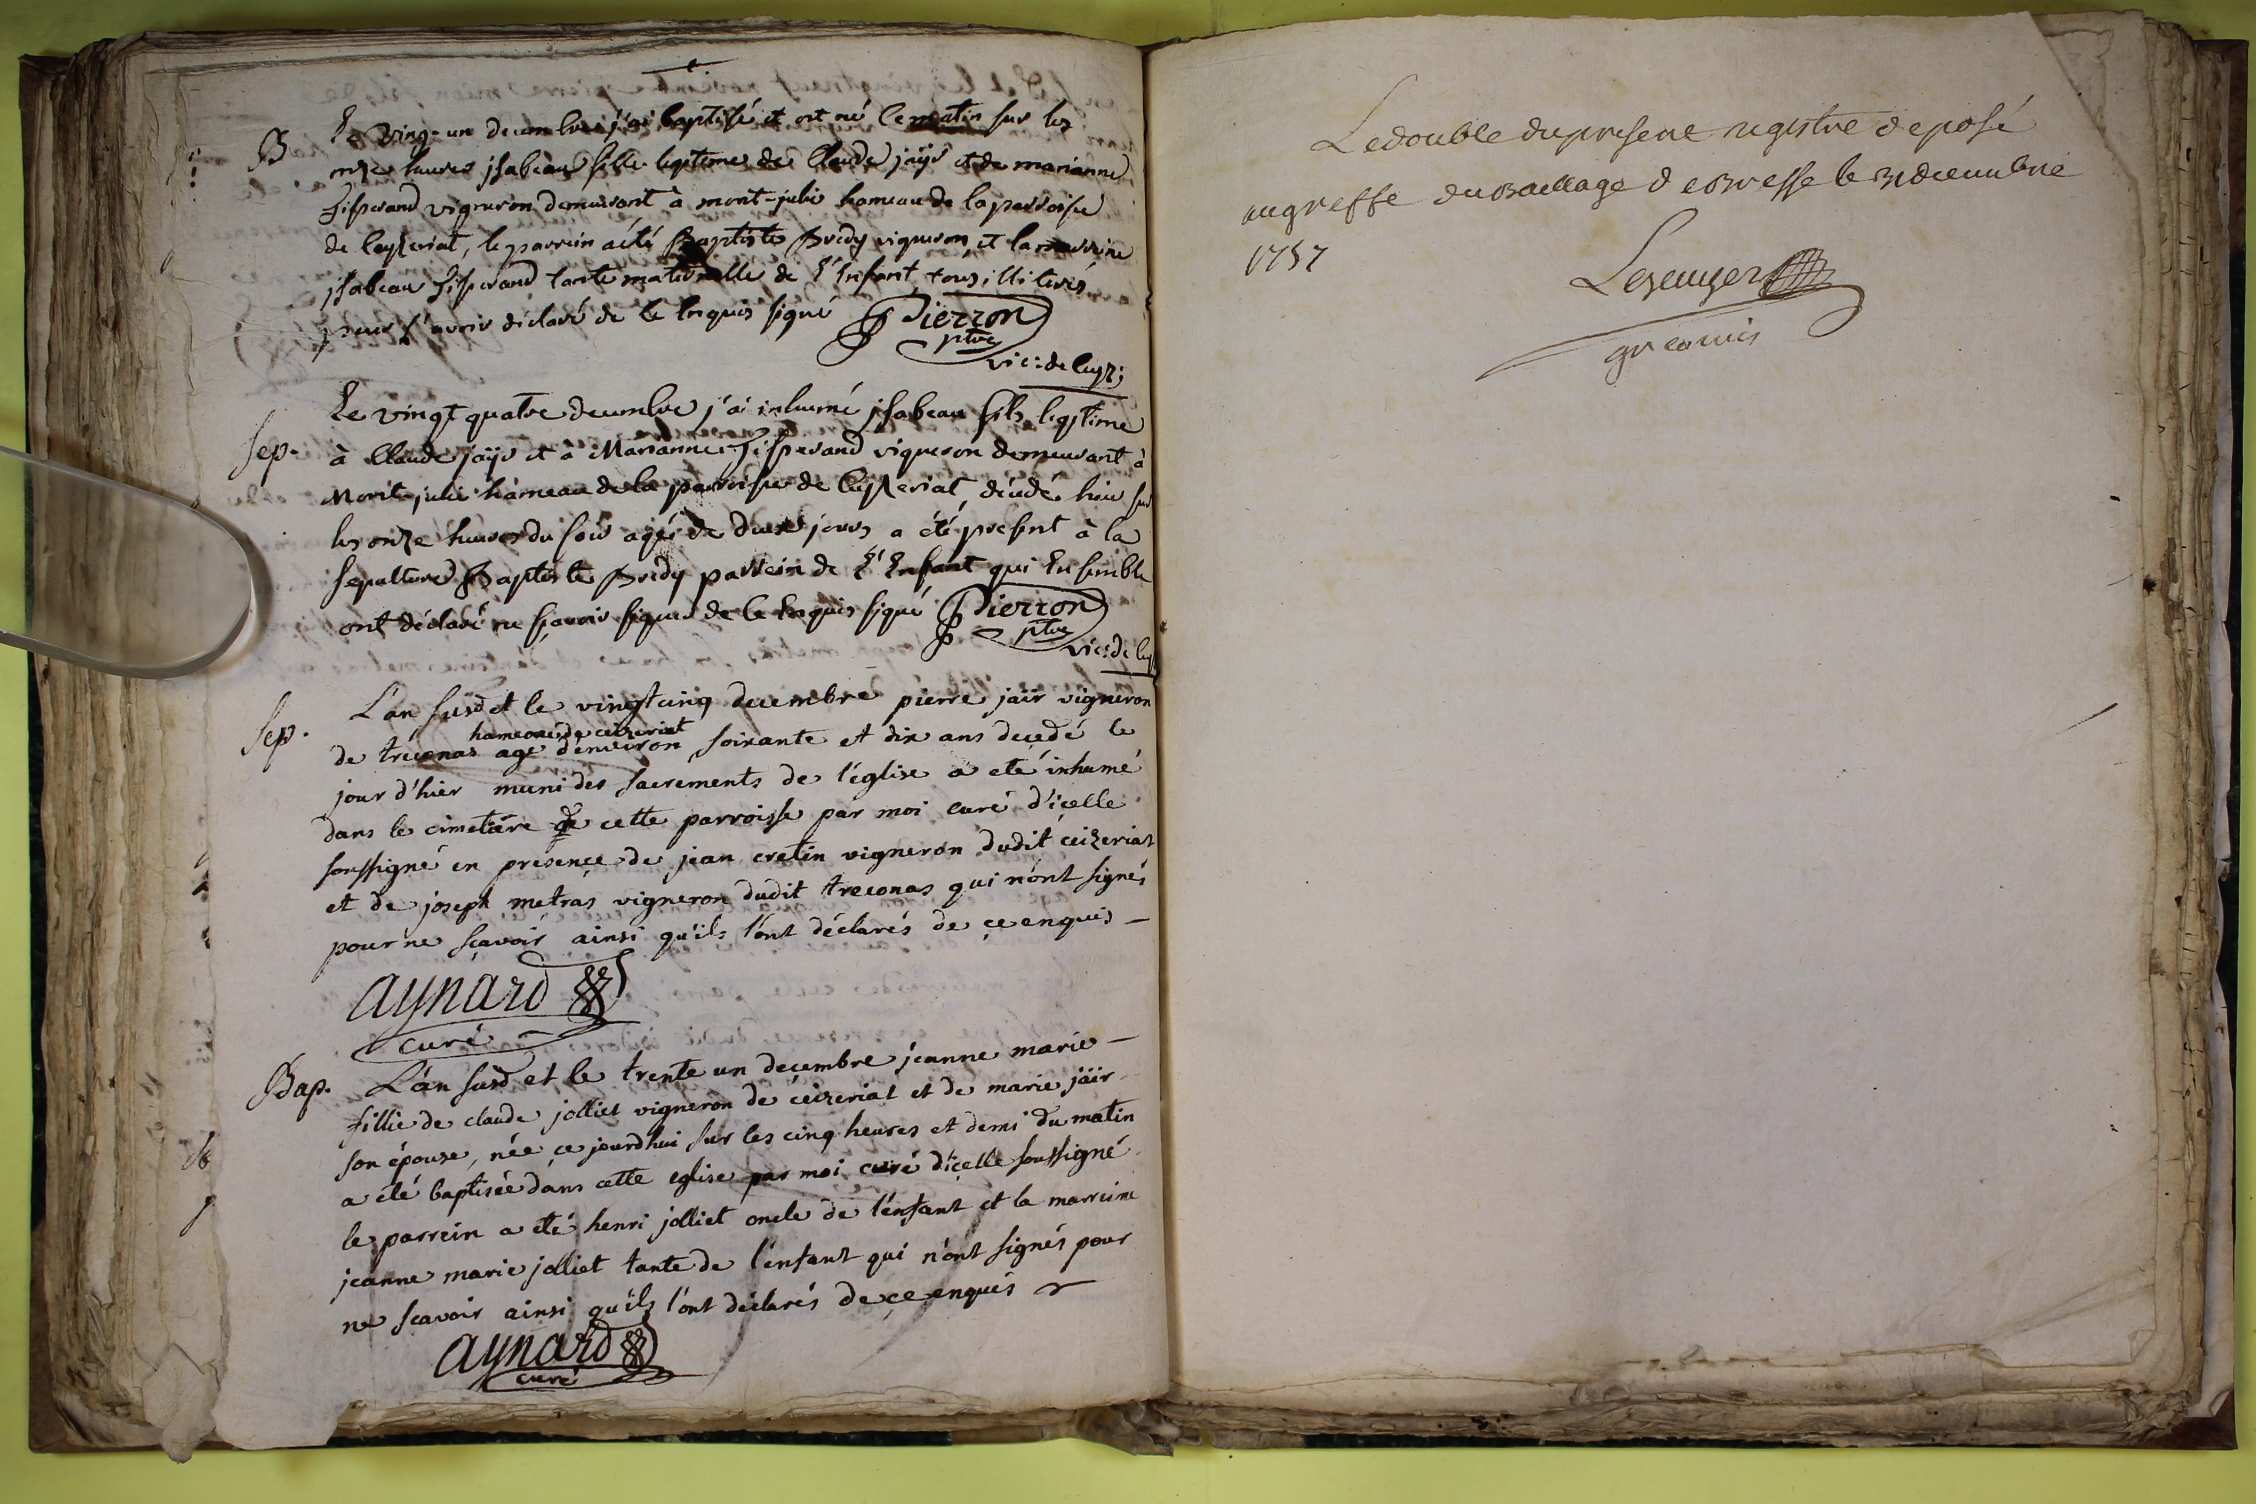 B
Le Ving-un decembre j'ai baptisé et est né ce matin sur les
onze heures jsabeau fille legitime de Claude jaÿr et de marianne
Tisserand vigneron demeurant à mont-julin hameau de la parroisse
de Ceyzeriat, le parrein a été Baptiste Bredy vigneron et la marreine
jsabeau Tisserand tante maternelle de L'Enfant tous illiterés
pour l'avoir déclaré de ce Enquis signé Pierron
ptre
vic: de Ceyz:
Sep.
Le vingt quatre decembre j'ai inhumé jsabeau fils legitime
à Claude jaÿr et à Marianne Tisserand vigneron demeurant à
Mont-julin hameau de la parroisse de Ceyzeriat, décédé hier sur
les onze heures du soir agé de deux jours a été present à la
sepulture Baptiste Bredy parrein de L'Enfant qui Ensemble
ont déclaré ne sçavoir signer de ce Enquis signé Pierron
ptre
vic: de Cey
Sep.
L'an susd et le vingtcinq decembre pierre jaïr vigneron
hameau de ceizeriat
de treconas agé d'environ soixante et dix ans decedé le
jour d'hier muni des sacrements de l'église a eté inhumé
dans le cimetiere de cette parroisse par moi curé d'icelle
soussigné en présence de jean cretin vigneron dudit ceizeriat
et de joseph metras vigneron dudit treconas qui n'ont signés
pour ne sçavoir ainsi qu'ils l'ont déclarés de ce enquis -
aynard
curé
Bap.
L'an susd et le trente un decembre jeanne marie -
fillie de claude jolliet vigneron de ceizeriat et de marie jaïr
son épouse, née ce jourdhui sur les cinq heures et demi du matin
a été baptisée dans cette eglise par moi curé d'icelle soussigné
le parrein a eté henri jolliet oncle de l'enfant et la marreine
jeanne marie jolliet tante de l'enfant qui n'ont signés pour
ne scavoir ainsi qu'ils l'ont declarés de ce enquis
aynard
curé
Le double du present registre deposé
au greffe du Baillage de Bresse le 31 decembre
1757
gr commis